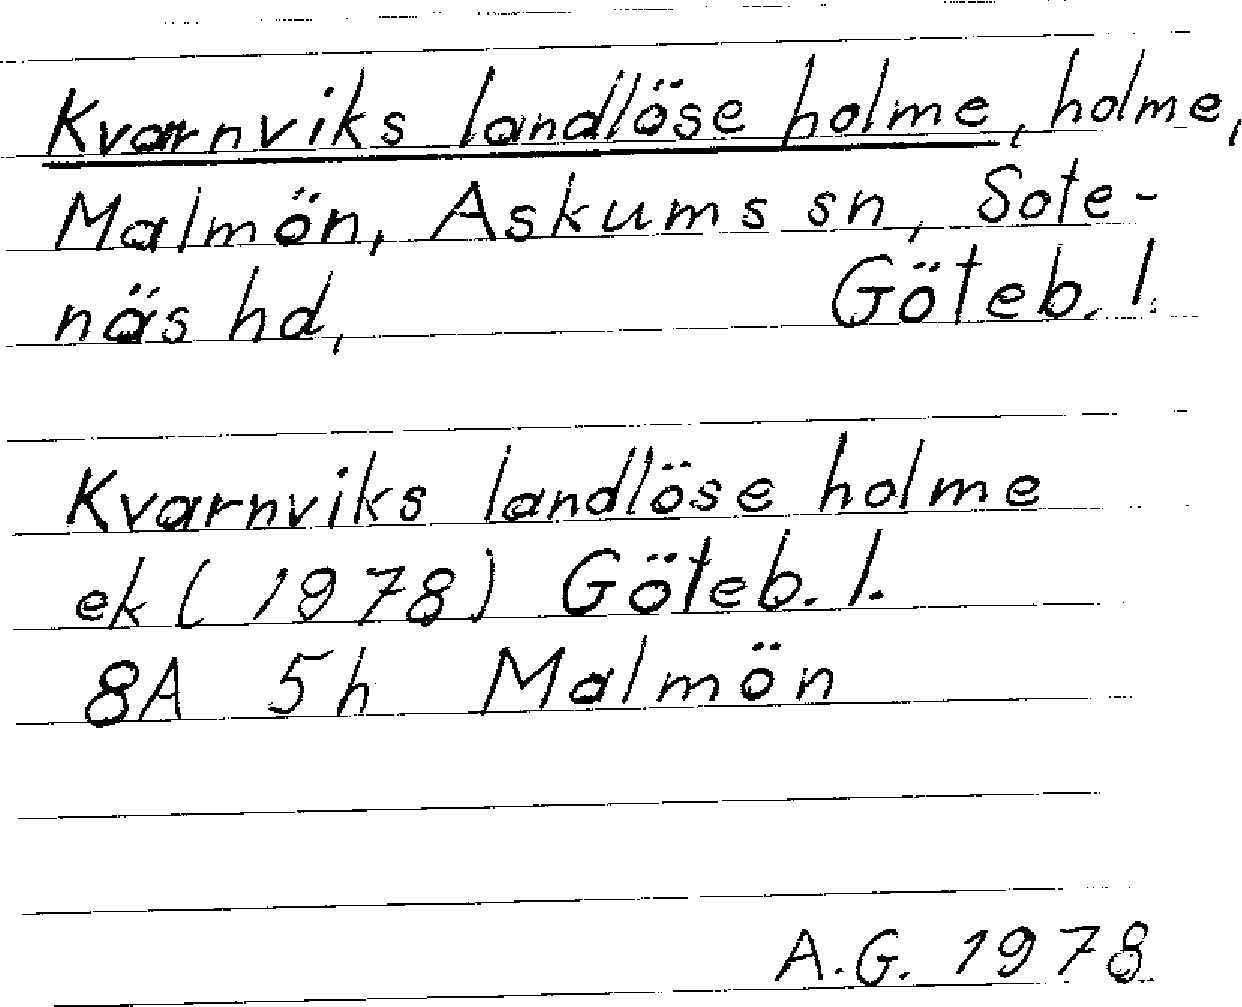 Kvarnviks landlöse holme, holme,
Malmön, Askums sn, Sote-
näs hd, Göteb. l.
Kvarnviks landlöse holme
ek (1978) Göteb. l.
8A 5h Malmön
A.G. 1978